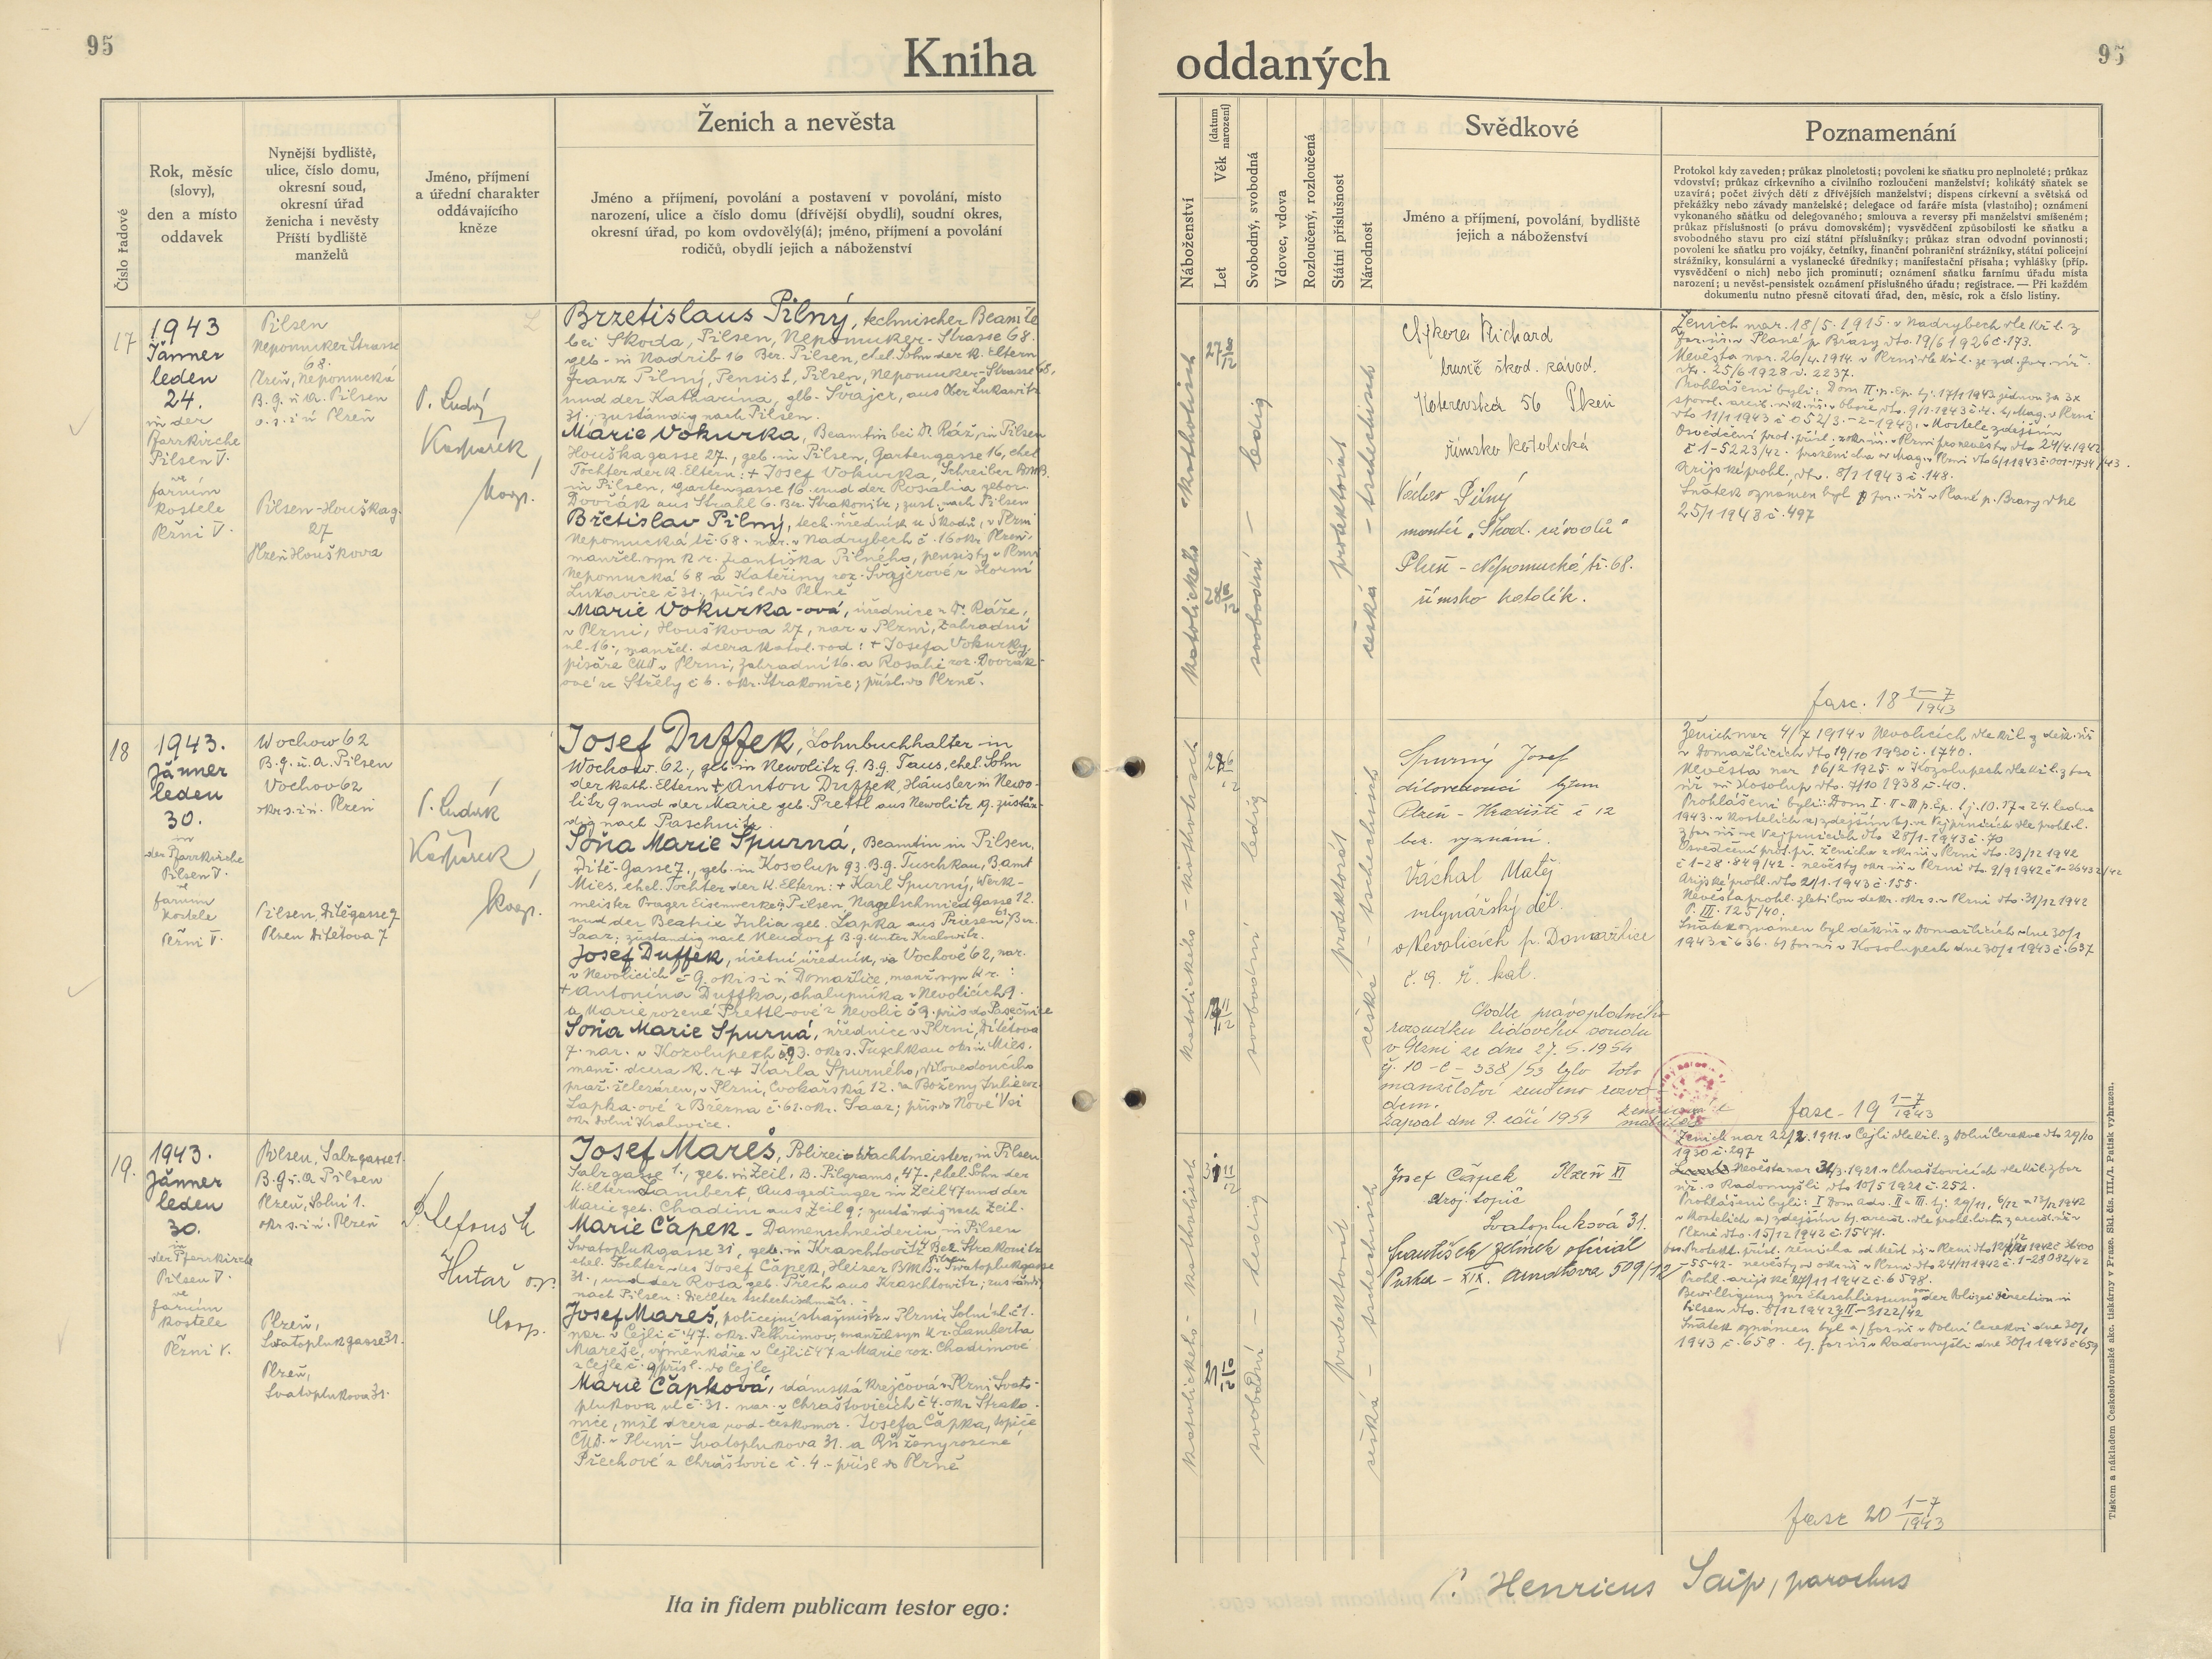 95
Kniha
Číslo řadové
Rok, měsíc
(slovy),
den a místo
oddavek
Nynější bydliště,
ulice, číslo domu,
okresní soud,
okresní úřad
ženicha i nevěsty
Příští bydliště
manželů
Jméno, příjmení
a úřední charakter
oddávajícího
kněze
Ženich a nevěsta
Jméno a příjmení, povolání a postavení v povolání, místo
narození, ulice a číslo domu (dřívější obydlí), soudní okres,
okresní úřad, po kom ovdovělý(á); jméno, příjmení a povolání
rodičů, obydlí jejich a náboženství
17
1943
Jänner
leden
24.
in der
Pfarrkirche
Pilsen V.
ve
farním
kostele
Plzni V.
Pilsen
Nepomuker Strasse
68.
Plzeň, Nepomucká
B.g. u. A. Pilsen
o.s. i ú Plzeň
Pilsen-Houškag.
27
Plzeň Houškova
P. Luděk
Kašpárek,
koop.
Brzetislaus Pilný, technischer Beamte
bei Skoda, Pilsen, Nepomuker-Strasse 68.
geb. in Nadrib 16 Bez. Pilsen, ehel. Sohn der k. Eltern
Franz Pilný, Pensist, Pilsen, Nepomuker-Strasse 68,
und der Katharina, geb. Švajcr, aus Ober Lukawitz
31., zuständig nach Pilsen.
Marie Vokurka, Beamtin bei Dr. Ráž, in Pilsen
Houškagasse 27., geb. in Pilsen, Gartengasse 16, ehel.
Tochter der k. Eltern: + Josef Vokurka, Schreiber BMB.
in Pilsen, Gartengasse 16. und der Rosalia gebor.
Dvořák aus Strahl 6. Bez. Strakonitz, zust. nach Pilsen
Břetislav Pilný, tech. úředník u Škodů, v Plzni
Nepomucká tř. 68. nar. v Nadrybech č. 16 okr. Plzeň,
manžel. syn k. r. Františka Pilného, pensisty v Plzni
Nepomucká 68 a Kateřiny roz. Švajcrové z Horní
Lukavice č 31., přísl. do Plzně
Marie Vokurka-ová, úřednice u Dr. Ráže,
v Plzni, Houškova 27, nar. v Plzni, Zahradní
ul. 16., manžel. dcera katol. rod: + Josefa Vokurky,
písaře ČMD v Plzni, Zahradní 16. a Rosalie roz. Dvořák-
ové ze Střely č 6. okr. Strakonice; přísl. do Plzně.
18
1943.
Jänner
leden
30.
in
der Pfarrkirche
Pilsen V.
ve
farním
kostele
Plzni V.
Wochow 62
B.g. u. A. Pilsen
Vochov 62
okr. s. i ú. Plzeň
Pilsen, Dítětgasse 7
Plzen Dítětova 7
P. Luděk
Kašpárek,
koop.
Josef Duffek, Lohnbuchhalter in
Wochow 62., geb. in Newolitz 9. B.g. Taus, ehel. Sohn
der kath. Eltern + Anton Duffek, Häusler in Newo-
litz 9 und der Marie geb. Prettl aus Newolitz 19. zustän-
dig nach Paschnitz.
Soňa Marie Spurná, Beamtin in Pilsen,
Dítě-Gasse 7., geb. in Kosolup 93. B.g. Tuschkau, B.amt
Mies, ehel. Tochter der k. Eltern: + Karl Spurný, Werk-
meister Prager Eisenwerke in Pilsen, Nagelschmied Gasse 12.
und der Beatrix Julia geb. Lapka aus Priesen 61, Bez.
Saaz; zuständig nach Neudorf B.g. Unter Kralowitz.
Josef Duffek, účetní úředník, ve Vochově 62, nar.
v Nevolicích č 9. okr. s. i ú Domažlice, manž. syn k. r. :
+ Antonína Duffka, chalupníka v Nevolicích 9.
a Marie rozené Prettl-ové z Nevolic č 9. přís. do Pasečnice
Soňa Marie Spurná, úřednice v Plzni, Dítětova
7. nar. v Kozolupech č 93. okr. s. Tuschkau okr. ú. Mies.
manž. dcera k. r. + Karla Spurného, dílovedoucího
praž. železáren, v Plzni, Cvokařská 12. a Boženy Julie roz.
Lapka-ové z Března č. 61. okr. Saaz; přís. do Nové Vsi
okr. Dolní Kralovice.
19.
1943.
Jänner
leden
30.
in
der Pfarrkirche
Pilsen V.
ve
farním
kostele
Plzni V.
Pilsen, Salzgasse 1.
B.g. u. A Pilsen
Plzeň, Solní 1.
okr. s. i ú. Plzeň
Plzeň,
Swatoplukgasse 31.
Plzeň,
Svatoplukova 31.
Hutař o.p.
Coop.
Josef Mareš, Polizei-Wachtmeister, in Pilsen
Salzgasse 1., geb. in Zeil, B. Pilgrams, 47., ehel. Sohn der
k. Eltern Lambert, Ausgedinger in Zeil 47 und der
Marie geb. Chadim aus Zeil 9; zuständig nach Zeil.
Marie Čapek - Damenschneiderin, in Pilsen
Swatoplukgasse 31, geb. in Kraschtowitz 4 Bez. Strakonitz
ehel. Tochter des Josef Čapek, Heizer BMB. Pilsen, Swatoplukgasse
31., und der Rosa geb. Přech aus Kraschtowitz; zuständig
nach Pilsen:
Josef Mareš, policejní strážmistr v Plzni Solní ul. č 1.
nar. v Cejli č 47. okr. Pelhřimov, manžel. syn k. r. Lamberta
Mareše, výměnkáře v Cejli č 47 a Marie roz. Chadimové
z Cejle č. 9 přísl. do Cejle
Marie Čapková, dámská krejčová v Plzni Svato-
plukova ul č. 31. nar. v Chraštovicích č 4. okr. Strako-
nice, mžl dcera rod. českomor. Josefa Čapka, topiče
ČMD. v Plzni - Svatoplukova 31. a Růženy rozené
Přechové z Chraštovic č. 4. - přísl do Plzně
Ita in fidem publicam testor ego:
oddaných
95
Náboženství
Let
Věk
(datum narození)
Svobodný, svobodná
Vdovec, vdova
Rozloučený, rozloučená
Státní příslušnost
Národnost
Svědkové
Jméno a příjmení, povolání, bydliště
jejich a náboženství
Poznamenání
Protokol kdy zaveden; průkaz plnoletosti; povolení ke sňatku pro neplnoleté; průkaz
vdovství; průkaz církevního a civilního rozloučení manželství; kolikátý sňatek se
uzavírá; počet živých dětí z dřívějších manželství; dispens církevní a světská od
překážky nebo závady manželské; delegace od faráře místa (vlastního); oznámení
vykonaného sňatku od delegovaného; smlouva a reversy při manželství smíšeném;
průkaz příslušnosti (o právu domovském); vysvědčení způsobilosti ke sňatku a
svobodného stavu pro cizí státní příslušníky; průkaz stran odvodní povinnosti;
povolení ke sňatku pro vojáky, četníky, finanční pohraniční strážníky, státní policejní
strážníky, konsulární a vyslanecké úředníky; manifestační přísaha; vyhlášky (příp.
vysvědčení o nich) nebo jich prominutí; oznámení sňatku farnímu úřadu místa
narození; u nevěst-pensistek oznámení příslušného úřadu; registrace. — Při každém
dokumentu nutno přesně citovati úřad, den, měsíc, rok a číslo listiny.
katolického katholisch
svobodní - ledig
protektorát
česká - tschechisch
Richard
brusič škod. závod.
Koterovská 56 Plzeň
římsko katolická
Václav Pilný
montér „Škod. závodů"
Plzeň - Nepomucká tř. 68.
římsko katolík.
Ženich nar. 18/5. 1915. v Nadrybech dle kř. l. z
far. úř. v Plané p. Brasy dto. 19/6 1926 č. 173.
Nevěsta nar. 26/4. 1914. v Plzni dle kř. l. ze zd. far. úř.
dto. 25/6 1928 č. 2237.
Prohlášeni byli: Dom II. p. Ep. tj. 17/1 1943 jednou za 3x
Arijské prohl. dto. 8/1 1943 č. 148.
Sňatek oznámen byl far. úř. v Plané p. Brasy dne
25/1 1943 č. 497
fasc. 18 1-7/1943
katolického - katholisch
svobodní ledig
protektorát
česká - tschechisch
Spurný Josef
dílovedoucí
Plzeň - Hradiště č 12
bez. vyznání.
Váchal Matěj
mlynářský děl.
v Nevolicích p. Domažlice
č. 9. ř. kat.
Podle právoplatného
rozsudku lidového soudu
v Plzni ze dne 27. 5. 1954
čj. 10-C-338/53 bylo toto
manželství zrušeno rozvo-
dem.
Zapsal dne 9. září 1954
Ženich nar 4/7 1914 v Nevolicích dle kř. l. z děk. úř.
v Domažlicích dto 19/10 1930 č. 1740.
Nevěsta nar 16/2 1925. v Kozolupech dle kř. l. z far
úř. v Kosolup dto. 7/10 1938 č. 40.
Prohlášeni byli: Dom I. II - III p. Ep. t. j. 10. 17 a 24. ledna
1943. v kostelích a) zdejším b) ve Vejprnicích dle prohl. l.
z far. úř. ve Vejprnicích dto 28/1 1943 č. 70
Arijské prohl. dto 21/1. 1943 č. 155.
Nevěsta prohl. zletilou dekr. okr. s. v Plzni dto. 31/12 1942
P. III. 125/40.
Sňatek oznámen byl děk. úř. v Domažlicích dne 30/1
1943 č. 636. b) far. úř. v Kosolupech dne 30/1 1943 č. 637
fasc. 19 1-7/1943
katolického - katholisch
svobodní - ledig
protektorát
česká - tschechisch
Josef Čapek Plzeň XI
stroj. topič
Svatoplukova 31.
František Zelinek oficiál
Praha - XIX. 509/12
Ženich nar 22/2. 1911. v Cejli dle kř. l. z Dolní Cerekve dto 29/10
1930 č. 297
Nevěsta nar 31/3. 1921. v Chraštovicích dle kř. l. z far
úř. v Radomyšli dto 10/5 1921 č. 252.
Prohl. arijské 27/11 1942 č. 6598.
Bewilligung zur Eheschliessung von der Polizei direction in
Pilsen dto. 5/12 1942 II-3122/42
Sňatek oznámen byl a) far. úř. v Dolní Cerekvi dne 30/1
1943 č. 658. b) far. úř. v Radomyšli dne 30/1 1943 č 659
fasc 20 1-7/1943
P. Henricus Saip, parochus
Tiskem a nákladem Československé akc. tiskárny v Praze. Skl. čís. III./1. Patisk vyhrazen.